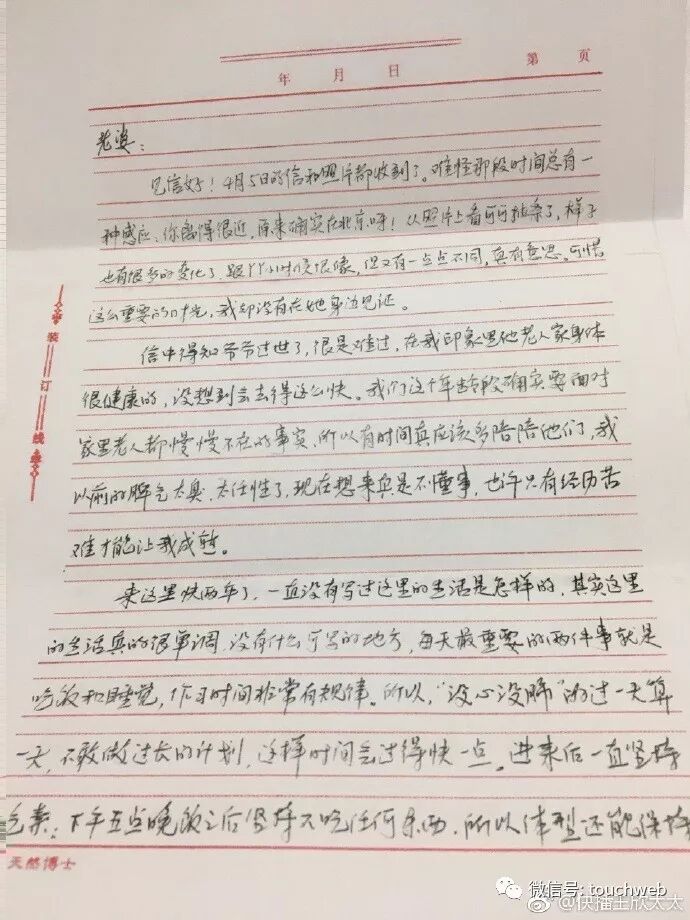 年 月 日 第 页
老婆：
见信好！4月5日的信和照片都收到了。难怪那段时间总有一
种感应，你离得很近，原来确实在北京呀！从照片上看可可长高了，样子
也有很多的变化了，跟丫丫小时候很像，但又有一点点不同，真有意思。可惜
这么重要的时光，我却没有在她身边见证。
信中得知爷爷过世了，很是难过，在我印象里他老人家身体
很健康的，没想到会去得这么快。我们这个年龄段确实要面对
家里老人都慢慢不在的事实，所以有时间真应该多陪陪他们，我
以前的脾气太臭，太任性了，现在想来真是不懂事，也许只有经历苦
难才能让我成熟。
来这里快两年了，一直没有写过这里的生活是怎样的，其实这里
的生活真的很单调，没有什么可写的地方，每天最重要的两件事就是
吃饭和睡觉，作习时间非常有规律。所以，“没心没肺”的过一天算
一天，不敢做过长的计划，这样时间会过得快一点。进来后一直坚持
吃素；下午五点晚饭之后坚持不吃任何东西，所以体型还能保持
装订线
天然博士
微信号: touchweb
@快播王欣太太